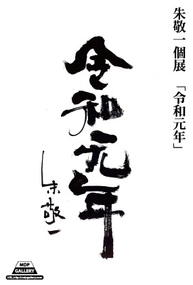 朱敬一 個展 「令和元年」
令和元年
朱敬一
MDP
GALLERY